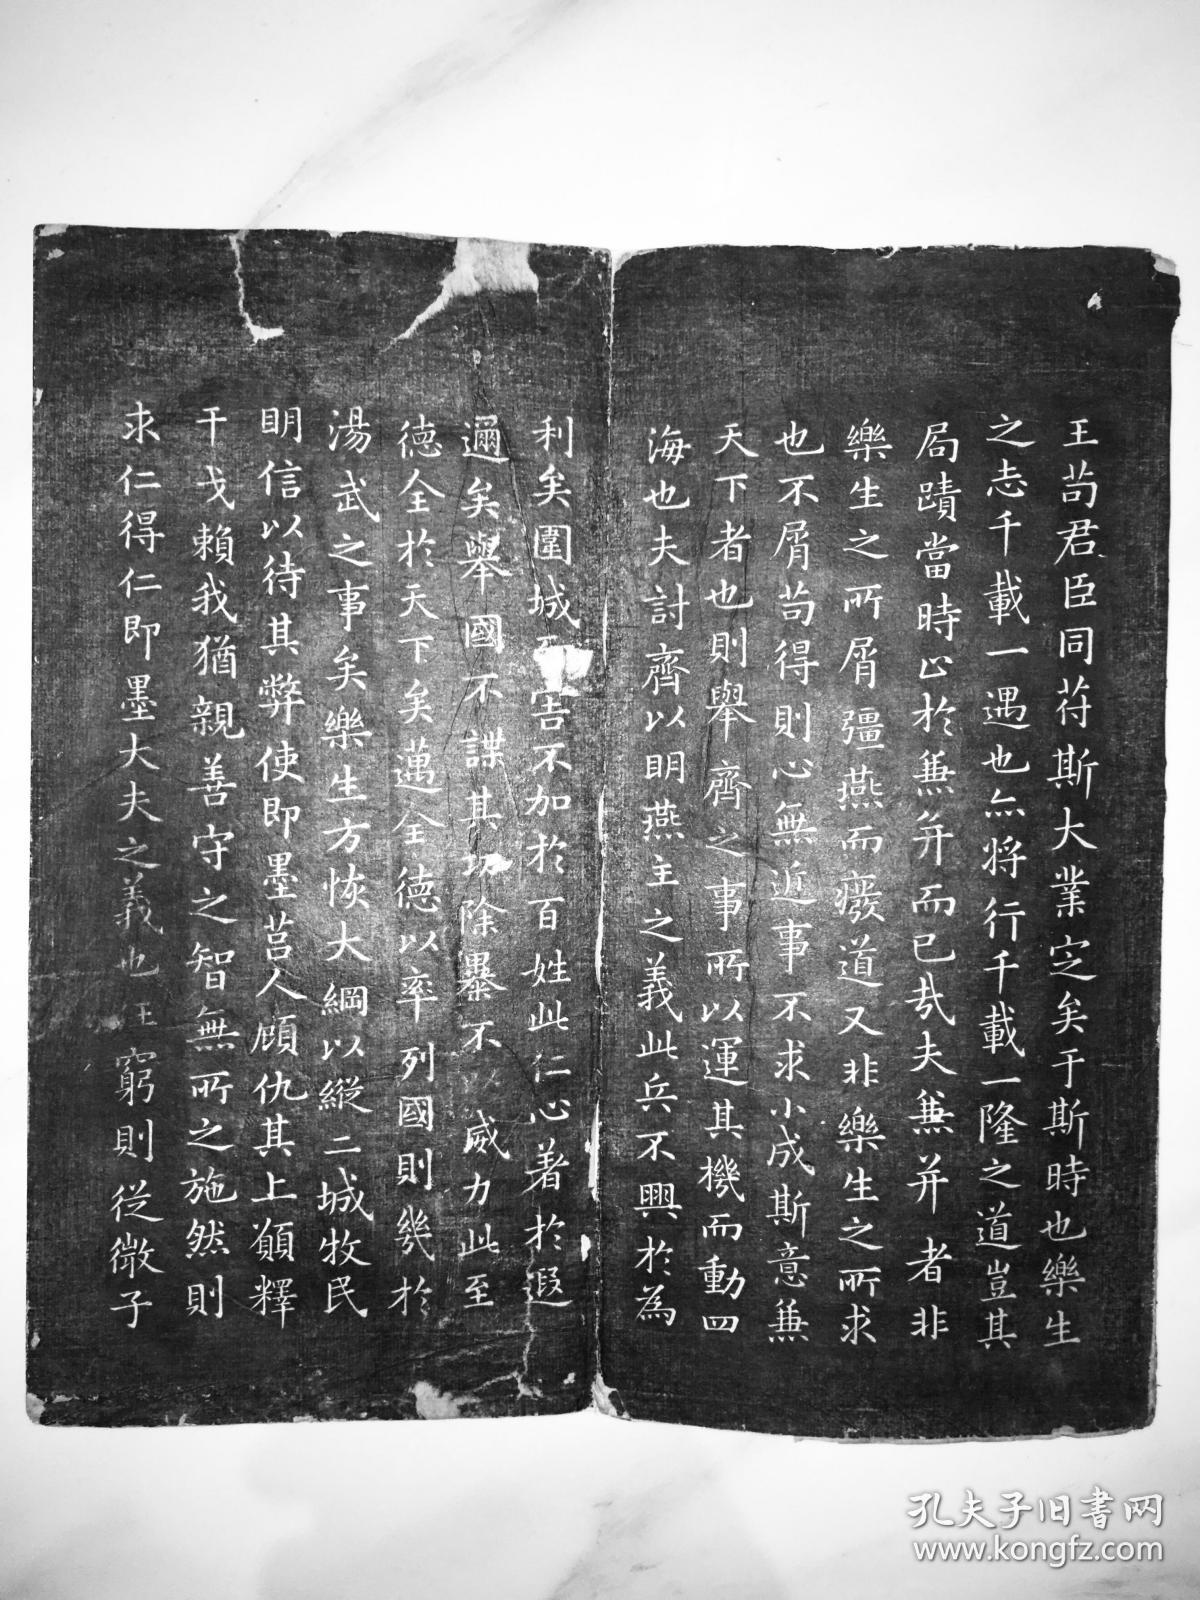 王苟君臣同苻斯大業定矣于斯時也樂生
之志千載一遇也亦將行千載一隆之道豈其
局蹟當時止於兼并而已哉夫兼并者非
樂生之所屑彊燕而癈道又非樂生之所求
也不屑苟得則心無近事不求小成斯意兼
天下者也則舉齊之事所以運其機而動四
海也夫討齊以明燕主之義此兵不興於為
利矣圍城害不加於百姓此仁心著於遐
邇矣舉國不謀其功除暴不以威力此至
德全於天下矣邁全德以率列國則幾於
湯武之事矣樂生方恢大綱以縱二城牧民
明信以待其弊使即墨莒人顧仇其上願釋
干戈賴我猶親善守之智無所之施然則
求仁得仁即墨大夫之義也任窮則從微子
孔夫子旧书网
www.kongfz.com